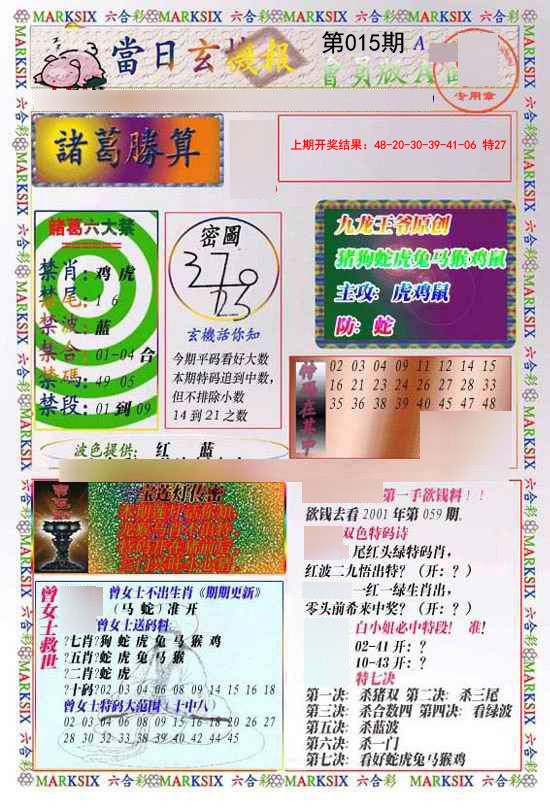 MARKSIX 六合彩 MARKSIX 六合彩 MARKSIX 六合彩 MARKSIX 六合彩
當日玄機報
第015期 A
會員版A面
专用章
諸葛勝算
上期开奖结果：48-20-30-39-41-06 特27
諸葛六大禁
禁肖：鸡 虎
禁尾：1 6
禁波：蓝
禁合：01-04 合
禁碼：49 05
禁段：01 到 09
密圖
玄機話你知
今期平码看好大数
本期特码追到中数，
但不排除小数
14 到 21 之数
九龙王爷原创
猪狗蛇虎兔马猴鸡鼠
主攻：虎鸡鼠
防：蛇
特碼在其中
02 03 04 09 11 12 14 15
16 21 23 24 26 27 28 33
35 36 38 39 40 45 47 48
波色提供：红 蓝
宝莲灯传密
第一手欲钱料！！
欲钱去看 2001 年第 059 期.
双色特码诗
尾红头绿特码肖，
红波二九悟出特？（开：？）
一红一绿生肖出，
零头前希来中奖？（开：？）
白小姐必中特段！ 准！
02-41 开：？
10-43 开：？
特七决
第一决：杀猪双 第二决：杀三尾
第三决：杀合数四 第四决：看绿波
第五决：杀蓝波
第六决：杀一门
第七决：看好蛇虎兔马猴鸡
曾女士救世
曾女士不出生肖《期期更新》
（马 蛇）准 开
曾女士送码料:
?七肖?狗 蛇 虎 兔 马 猴 鸡
?五肖?蛇 虎 兔 马 猴
?二肖?蛇 虎
?十码?02 03 04 06 08 09 14 15 16 18
曾女士特码大范围（十中八）
02 03 04 06 08 09 15 16 18 20 26 27
28 30 32 33 38 39 40 42 44 45
MARKSIX 六合彩 MARKSIX 六合彩 MARKSIX 六合彩 MARKSIX 六合彩